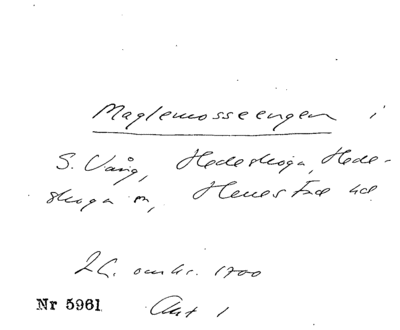 Maglemosseengen i
S. Vång, Hedeskoga, Hede-
skoga sn, Herrestad hd
omkr. 1700
Nr 5961 Akt 1